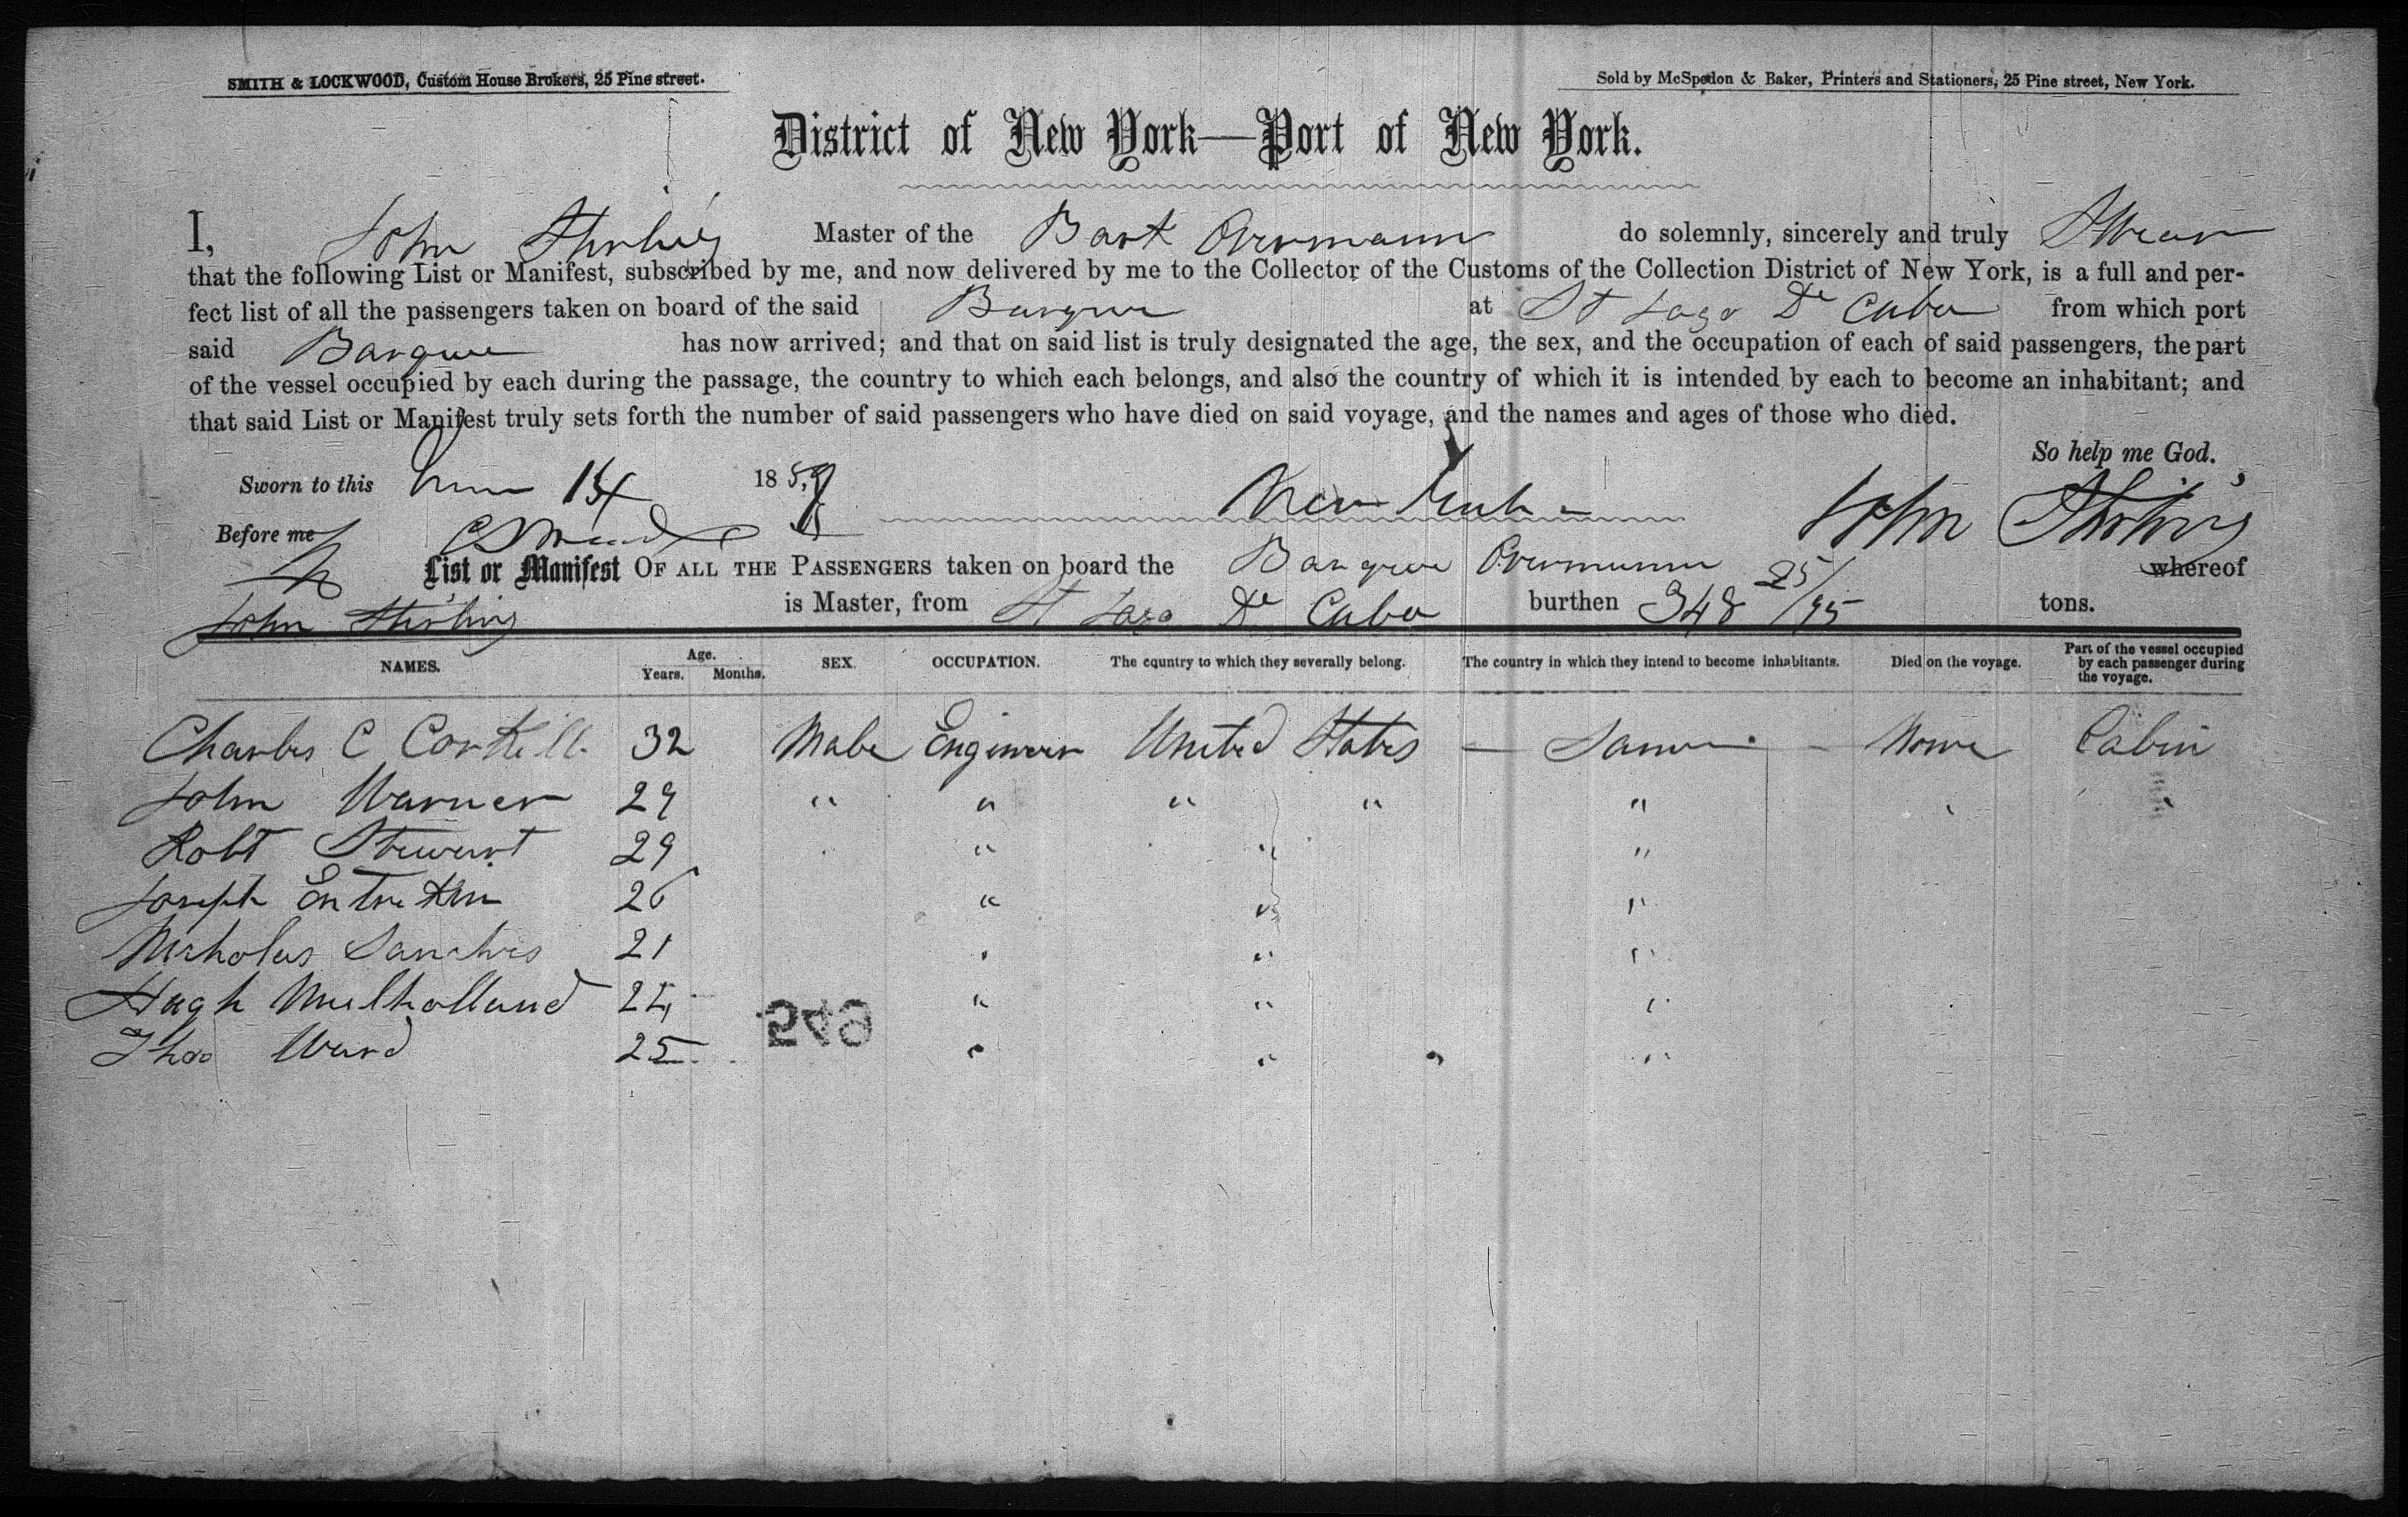 SMITH & LOCKWOOD, Custom House Brokers, 25 Pine street.
Sold by McSpedon & Baker, Printers and Stationers, 25 Pine street, New York.
District of New York—Port of New York.
I, John Stirling Master of the Bark Overmann do solemnly, sincerely and truly Swear
that the following List or Manifest, subscribed by me, and now delivered by me to the Collector of the Customs of the Collection District of New York, is a full and per-
fect list of all the passengers taken on board of the said Barque at St Jago De Cuba from which port
said Barque has now arrived; and that on said list is truly designated the age, the sex, and the occupation of each of said passengers, the part
of the vessel occupied by each during the passage, the country to which each belongs, and also the country of which it is intended by each to become an inhabitant; and
that said List or Manifest truly sets forth the number of said passengers who have died on said voyage, and the names and ages of those who died.
So help me God.
Sworn to this June 1859 New York John Stirling
Before me
List or Manifest OF ALL THE PASSENGERS taken on board the Barque Overmann whereof
John Stirling is Master, from St Jago De Cuba burthen 348 25/95 tons.
NAMES. Age. Years. Months. SEX. OCCUPATION. The country to which they severally belong. The country in which they intend to become inhabitants. Died on the voyage. Part of the vessel occupied by each passenger during the voyage.
Charles C Corkill 32 Male Engineer United States — Same — None Cabin
John Warner 29 " " " " "
Robt Stewart 29 " " "
Joseph Entrekin 26 " " "
Nicholas Sanches 21 " " "
Hugh Mulholland 24 " " "
Thos Ward 25 " " "